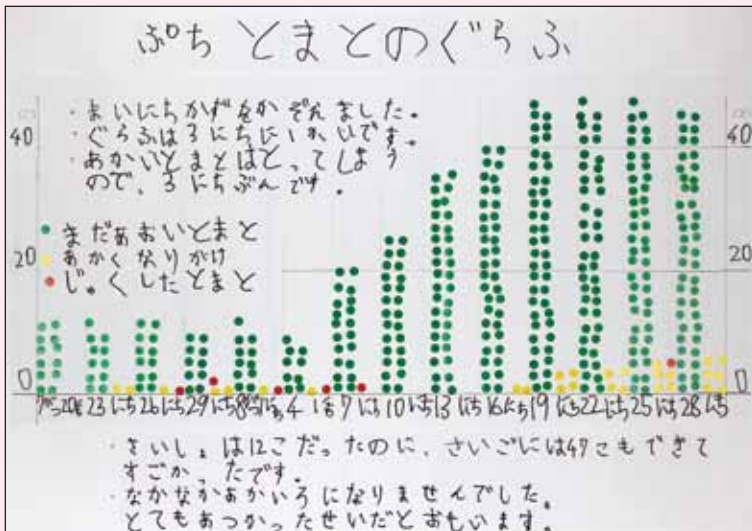 ぷちとまとのぐらふ
・まいにちかずをかぞえました。
・ぐらふは3にちに1かいです。
・あかいとまとはとってしまう
ので、3にちぶんです。
40 40
まだあおいとまと
あかくなりかけ
じゅくしたとまと
20 20
0 0
7がつ20 23にち 26にち 29にち 8がつ1にち 4にち 7にち 10にち 13にち 16にち 19にち 22にち 25にち 28にち
・さいしょは12こだったのに、さいごには47こもできて
すごかったです。
・なかなかあかいろになりませんでした。
とてもあつかったせいだとおもいます。